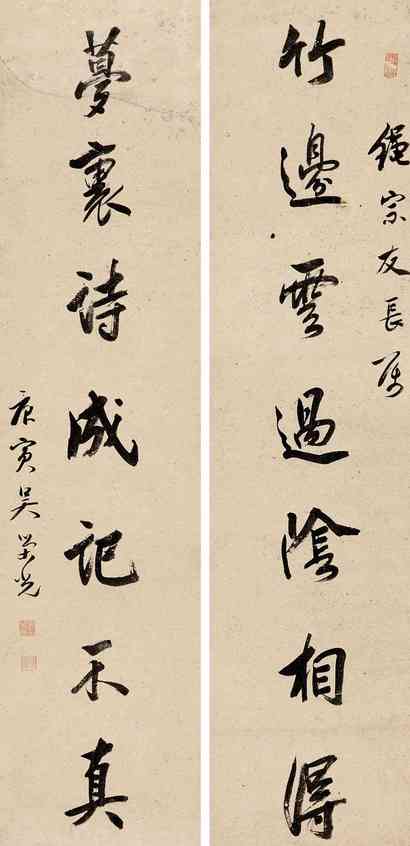 繩宗友長屬
竹邊雲過陰相得
夢裏詩成記不真
庚寅吳榮光